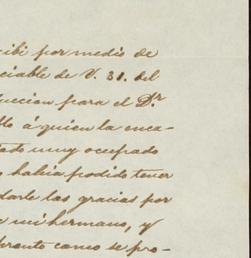 cibí por medio de
ciable de V. 31. del
duccion para el D.r
llo á quien la enca-
tado muy ocupado
o habia podido tener
darle las gracias por
e mi hermano, y
pronto como se pro-